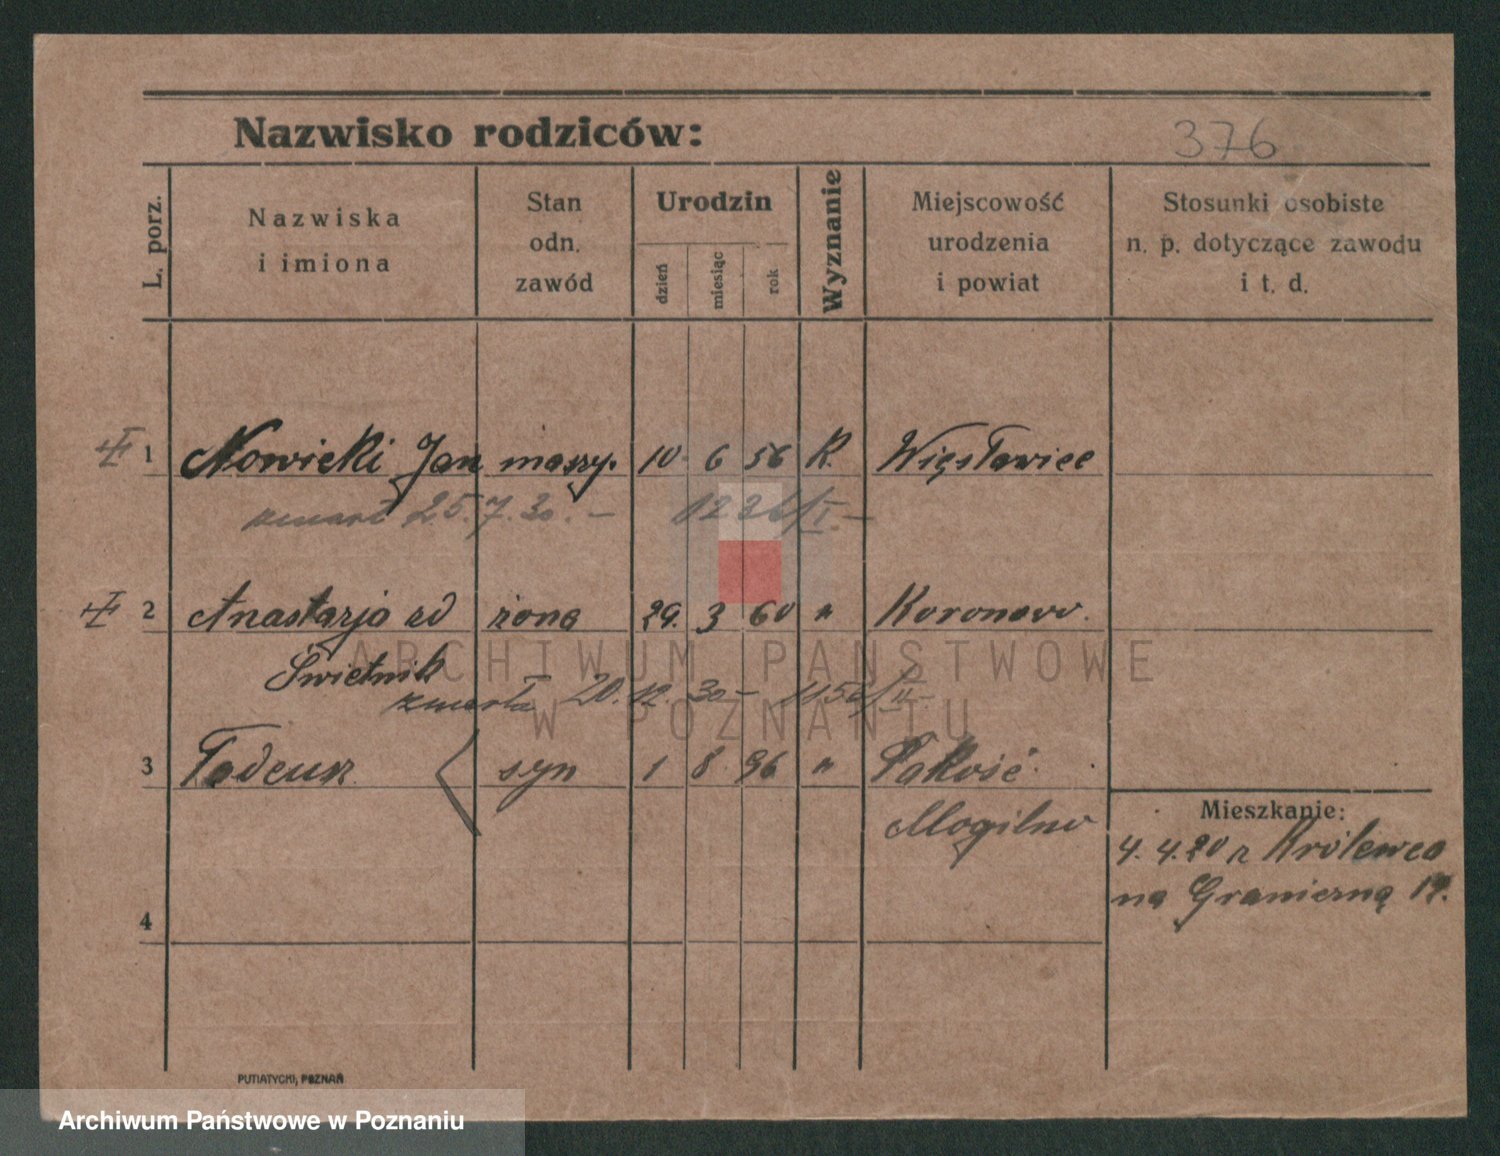 Nazwisko rodziców:
376
L. porz.
Nazwiska
i imiona
Stan
odn.
zawód
Urodzin
dzień
miesiąc
rok
Wyznanie
Miejscowość
urodzenia
i powiat
Stosunki osobiste
n. p. dotyczące zawodu
i t. d.
1 Nowicki Jan maszy. 10. 6 56 K. Więsławice
zmarł 25.7.30. – 1226/I –
2 Anastazja zd żona 29. 3 60 " Koronowo.
Świetnik
zmarła 20.12.30 – 1156/II –
3 Tadeusz syn 1 8 96 " Pakość
Mogilno
Mieszkanie:
4.4.20 z Królewca
na Graniczną 19.
4
PUTIATYCKI, POZNAŃ
ARCHIWUM PAŃSTWOWE
W POZNANIU
Archiwum Państwowe w Poznaniu